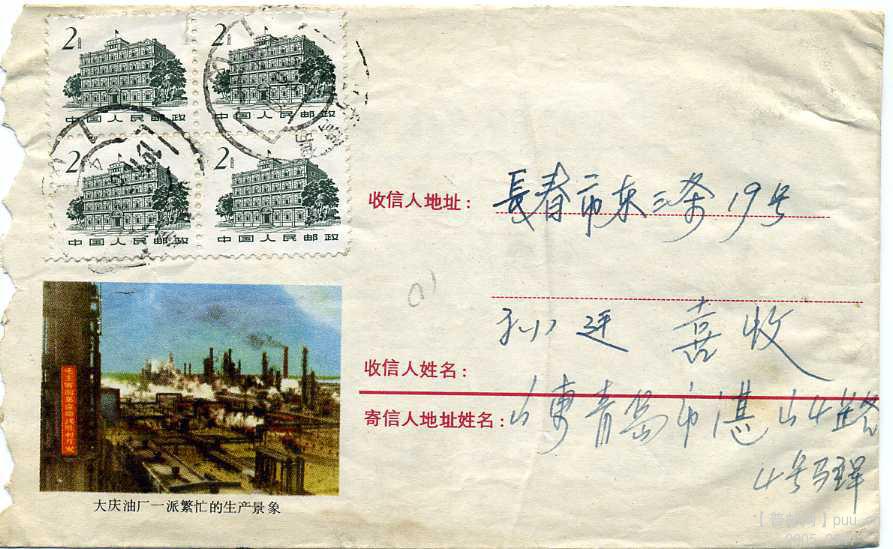 2分
2分
中国人民邮政
中国人民邮政
2分
2分
中国人民邮政
中国人民邮政
收信人地址：長春市东三条19号
孙廷喜收
收信人姓名：
寄信人地址姓名：山東青岛市湛山4路
4号
大庆油厂一派繁忙的生产景象
puu